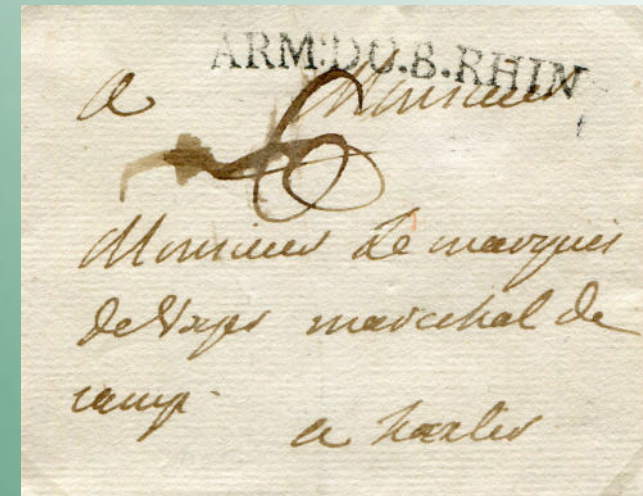 ARM:DU.B.RHIN
a Monsieur
6
Monsieur Le marquis
de marechal de
camp.
a